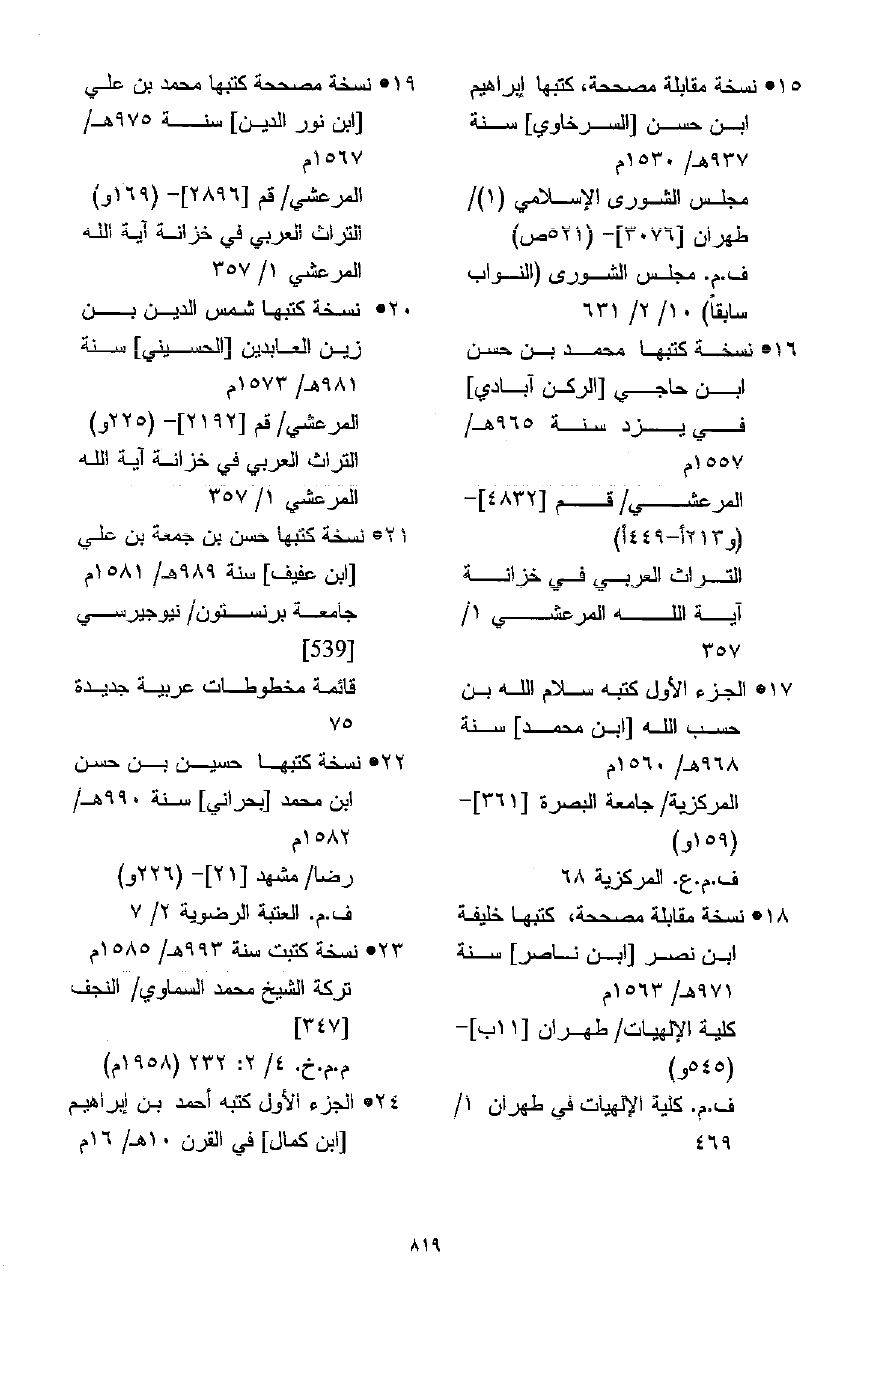 ١٥• نسخة مقابلة مصححة، كتبها إبراهيم
ابن حسن [السرخاوي] سنة
٩٣٧هـ/ ١٥٣٠م
مجلس الشورى الإسلامي (١)/
طهران [٣٠٧٦]– (٥٢١ص)
ف.م. مجلس الشورى (النواب
سابقاً) ١٠/ ٢/ ٦٣١
١٦• نسخة كتبها محمد بن حسن
ابن حاجي [الركن آبادي]
في يزد سنة ٩٦٥هـ/
١٥٥٧م
المرعشي/ قم [٤٨٣٢]–
(و٢١٣أ–٤٤٩أ)
التراث العربي في خزانة
آية الله المرعشي ١/
٣٥٧
١٧• الجزء الأول كتبه سلام الله بن
حسب الله [ابن محمد] سنة
٩٦٨هـ/ ١٥٦٠م
المركزية/ جامعة البصرة [٣٦١]–
(١٥٩و)
ف.م.ع. المركزية ٦٨
١٨• نسخة مقابلة مصححة، كتبها خليفة
ابن نصر [ابن ناصر] سنة
٩٧١هـ/ ١٥٦٣م
كلية الإلهيات/ طهران [١١ب]–
(٥٤٥و)
ف.م. كلية الإلهيات في طهران ١/
٤٦٩
١٩• نسخة مصححة كتبها محمد بن علي
[ابن نور الدين] سنة ٩٧٥هـ/
١٥٦٧م
المرعشي/ قم [٢٨٩٦]– (١٦٩و)
التراث العربي في خزانة آية الله
المرعشي ١/ ٣٥٧
٢٠• نسخة كتبها شمس الدين بن
زين العابدين [الحسيني] سنة
٩٨١هـ/ ١٥٧٣م
المرعشي/ قم [٢١٩٢]– (٢٢٥و)
التراث العربي في خزانة آية الله
المرعشي ١/ ٣٥٧
٢١• نسخة كتبها حسن بن جمعة بن علي
[ابن عفيف] سنة ٩٨٩هـ/ ١٥٨١م
جامعة برنستون/ نيوجيرسي
[539]
قائمة مخطوطات عربية جديدة
٧٥
٢٢• نسخة كتبها حسين بن حسن
ابن محمد [بحراني] سنة ٩٩٠هـ/
١٥٨٢م
رضا/ مشهد [٢١]– (٢٢٦و)
ف.م. العتبة الرضوية ٢/ ٧
٢٣• نسخة كتبت سنة ٩٩٣هـ/ ١٥٨٥م
تركة الشيخ محمد السماوي/ النجف
[٣٤٧]
م.م.خ. ٤/ ٢: ٢٣٢ (١٩٥٨م)
٢٤• الجزء الأول كتبه أحمد بن إبراهيم
[ابن كمال] في القرن ١٠هـ/ ١٦م
٨١٩